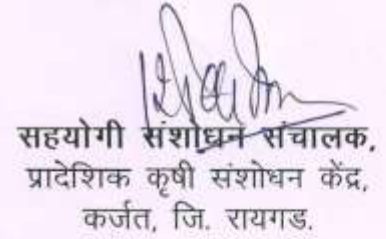 सहयोगी संशोधन संचालक,
प्रादेशिक कृषी संशोधन केंद्र,
कर्जत, जि. रायगड.